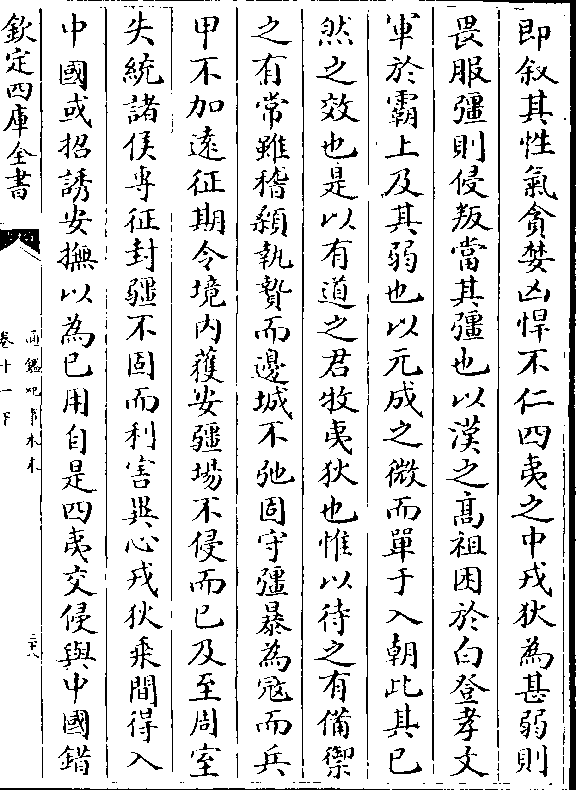 即叙其性氣貪婪凶悍不仁四夷之中戎狄為甚弱則
畏服彊則侵叛當其彊也以漢之高祖困於白登孝文
軍於霸上及其弱也以元成之微而單于入朝此其已
然之效也是以有道之君牧夷狄也惟以待之有備禦
之有常雖稽顙執贄而邊城不弛固守彊暴為寇而兵
甲不加逺征期令境内獲安疆場不侵而已及至周室
失統諸侯専征封疆不固而利害異心戎狄乘間得入
中國或招誘安撫以為已用自是四夷交侵與中國錯
欽定四庫全書
通鑑紀事本末
卷十一下
二十八